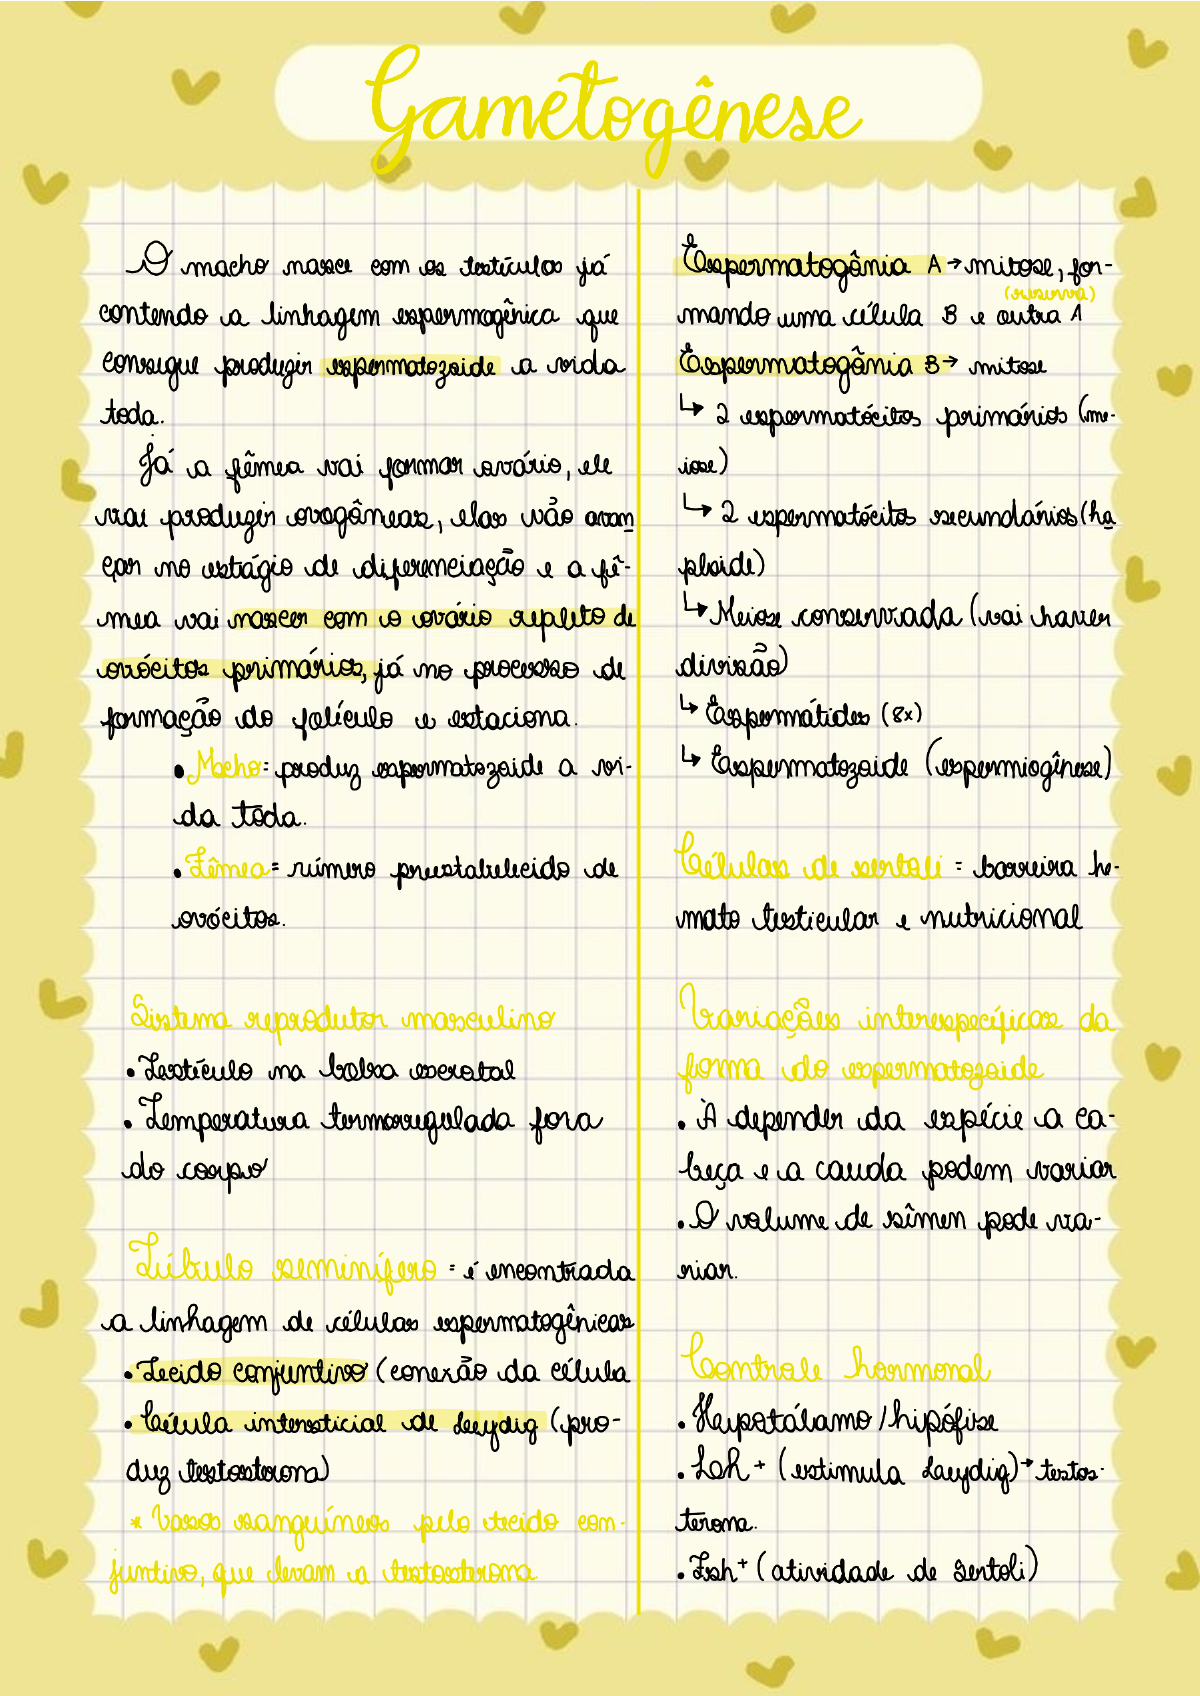 Gametogênese
O macho nasce com os testículos já
contendo a linhagem espermogênica que
consegue produzir espermatozoide a vida
toda.
Já a fêmea vai formar ovário, ele
vai produzir ovogôneas, elas vão avan
çar no estágio de diferenciação e a fê-
mea vai nascer com o ovário repleto de
ovócitos primários, já no processo de
formação do folículo e estaciona.
• Macho = produz espermatozoide a vi-
da toda.
• Fêmea = número preestabelecido de
ovócitos.
Sistema reprodutor masculino
• Testículo na bolsa escrotal
• Temperatura termorregulada fora
do corpo
Túbulo seminífero = é encontrada
a linhagem de células espermatogênicas
• Tecido conjuntivo (conexão da célula
• Célula intersticial de Leydig (pro-
duz testosterona)
* Vasos sanguíneos pelo tecido con-
juntivo, que levam a testosterona
Espermatogônia A → mitose, for-
(reserva)
mando uma célula B e outra A
Espermatogônia B → mitose
↳ 2 espermatócitos primários (me-
iose)
↳ 2 espermatócitos secundários (ha
ploide)
↳ Meiose conservada (vai haver
divisão)
↳ Espermátides (8x)
↳ Espermatozoide (espermiogênese)
Células de sertoli = barreira he-
mato testicular e nutricional
Variações interespecíficas da
forma do espermatozoide
• À depender da espécie a ca-
beça e a cauda podem variar
• O volume de sêmen pode va-
riar.
Controle hormonal
• Hipotálamo / hipófise
• Lsh + (estimula Laeydig) → testos-
terona.
• Fsh + (atividade de Sertoli)